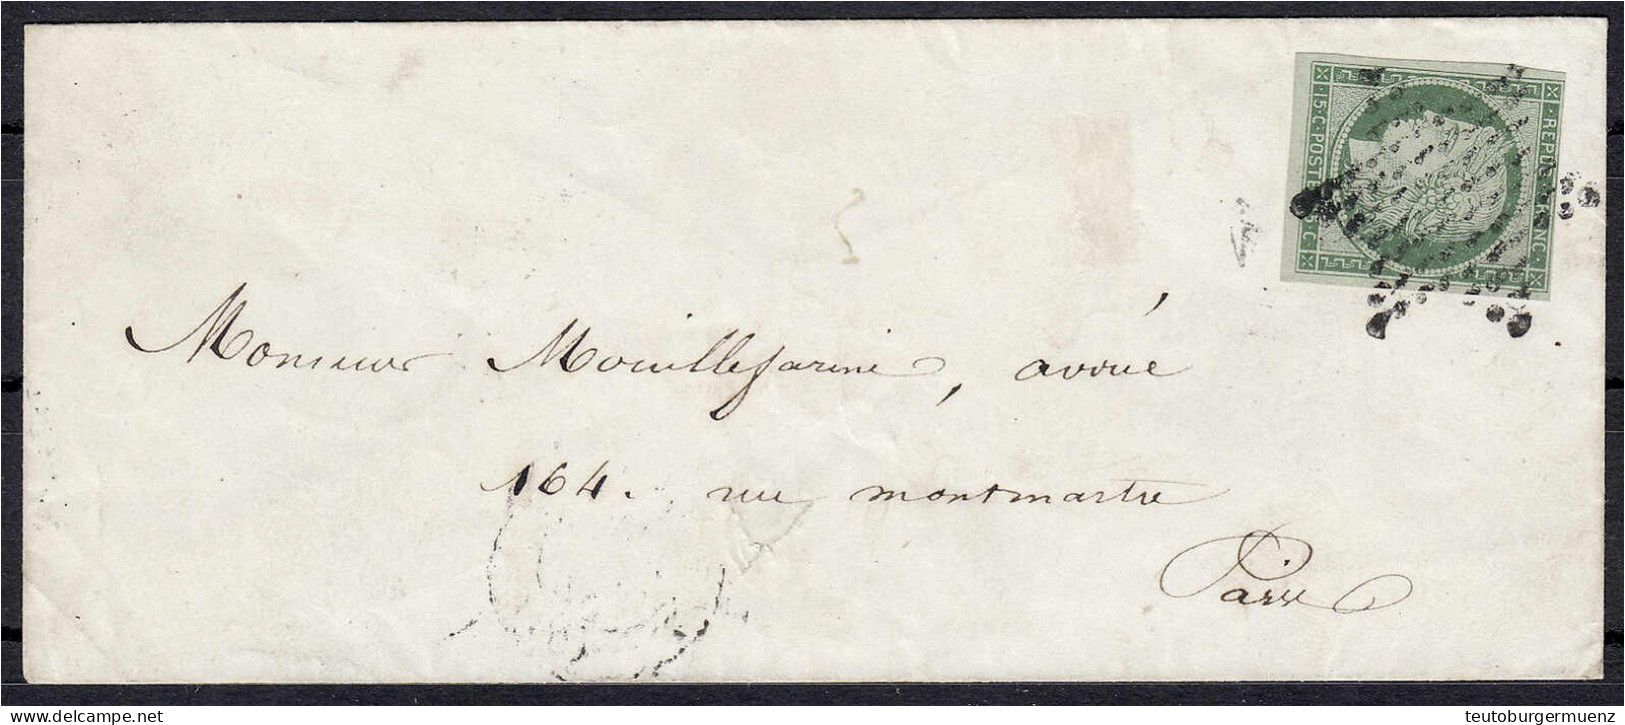 · REPUB FRANC ·
15 · C · POSTE C
Monsieur Mouillefarine, avoué
164. rue montmartre
Paris
delcampe.net
teutoburgermuenz